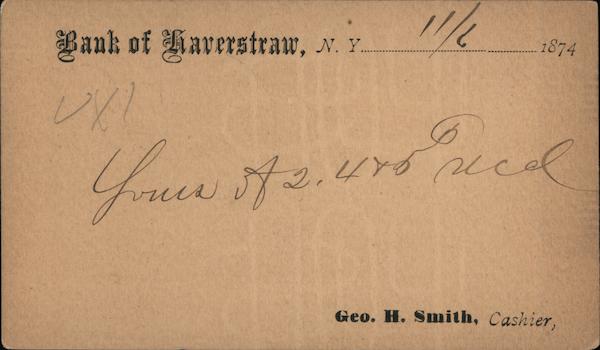 Bank of Haverstraw, N. Y. 11/6 1874
Yours 2. 4 & 5 recd
Geo. H. Smith, Cashier,